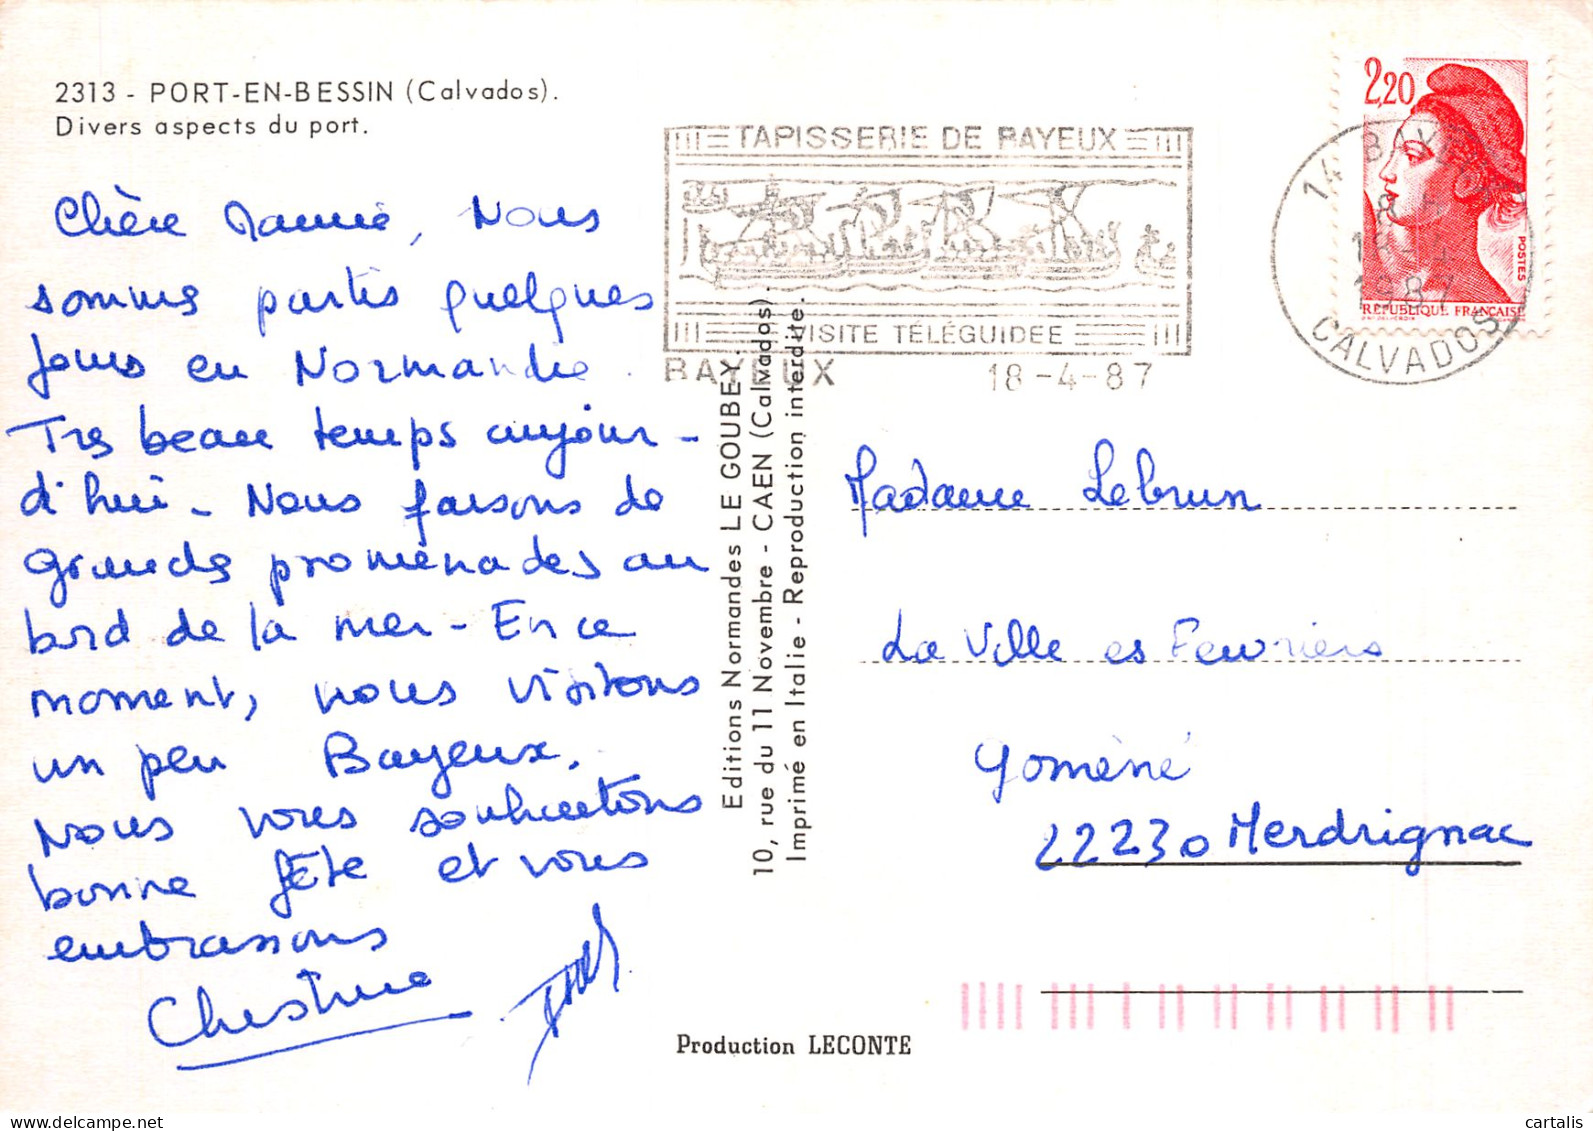 2313 - PORT-EN-BESSIN (Calvados).
Divers aspects du port.
Chère Mamie, Nous
sommes partis quelques
jours en Normandie.
Très beau temps aujour-
d'hui - Nous faisons de
grandes promenades au
bord de la mer - En ce
moment, nous visitons
un peu Bayeux.
Nous vous souhaitons
bonne fête et vous
embrassons
Christine
Editions Normandes LE GOUBEY.
10, rue du 11 Novembre - CAEN (Calvados).
Imprimé en Italie - Reproduction interdite.
Production LECONTE
TAPISSERIE DE BAYEUX
VISITE TÉLÉGUIDEE
BAYEUX 18-4-87
2,20
POSTES
RÉPUBLIQUE FRANÇAISE
14 BAYEUX
1987
CALVADOS
Madame Lebrun
La Ville es Fevriers
Goméné
22230 Merdrignac
cartalis